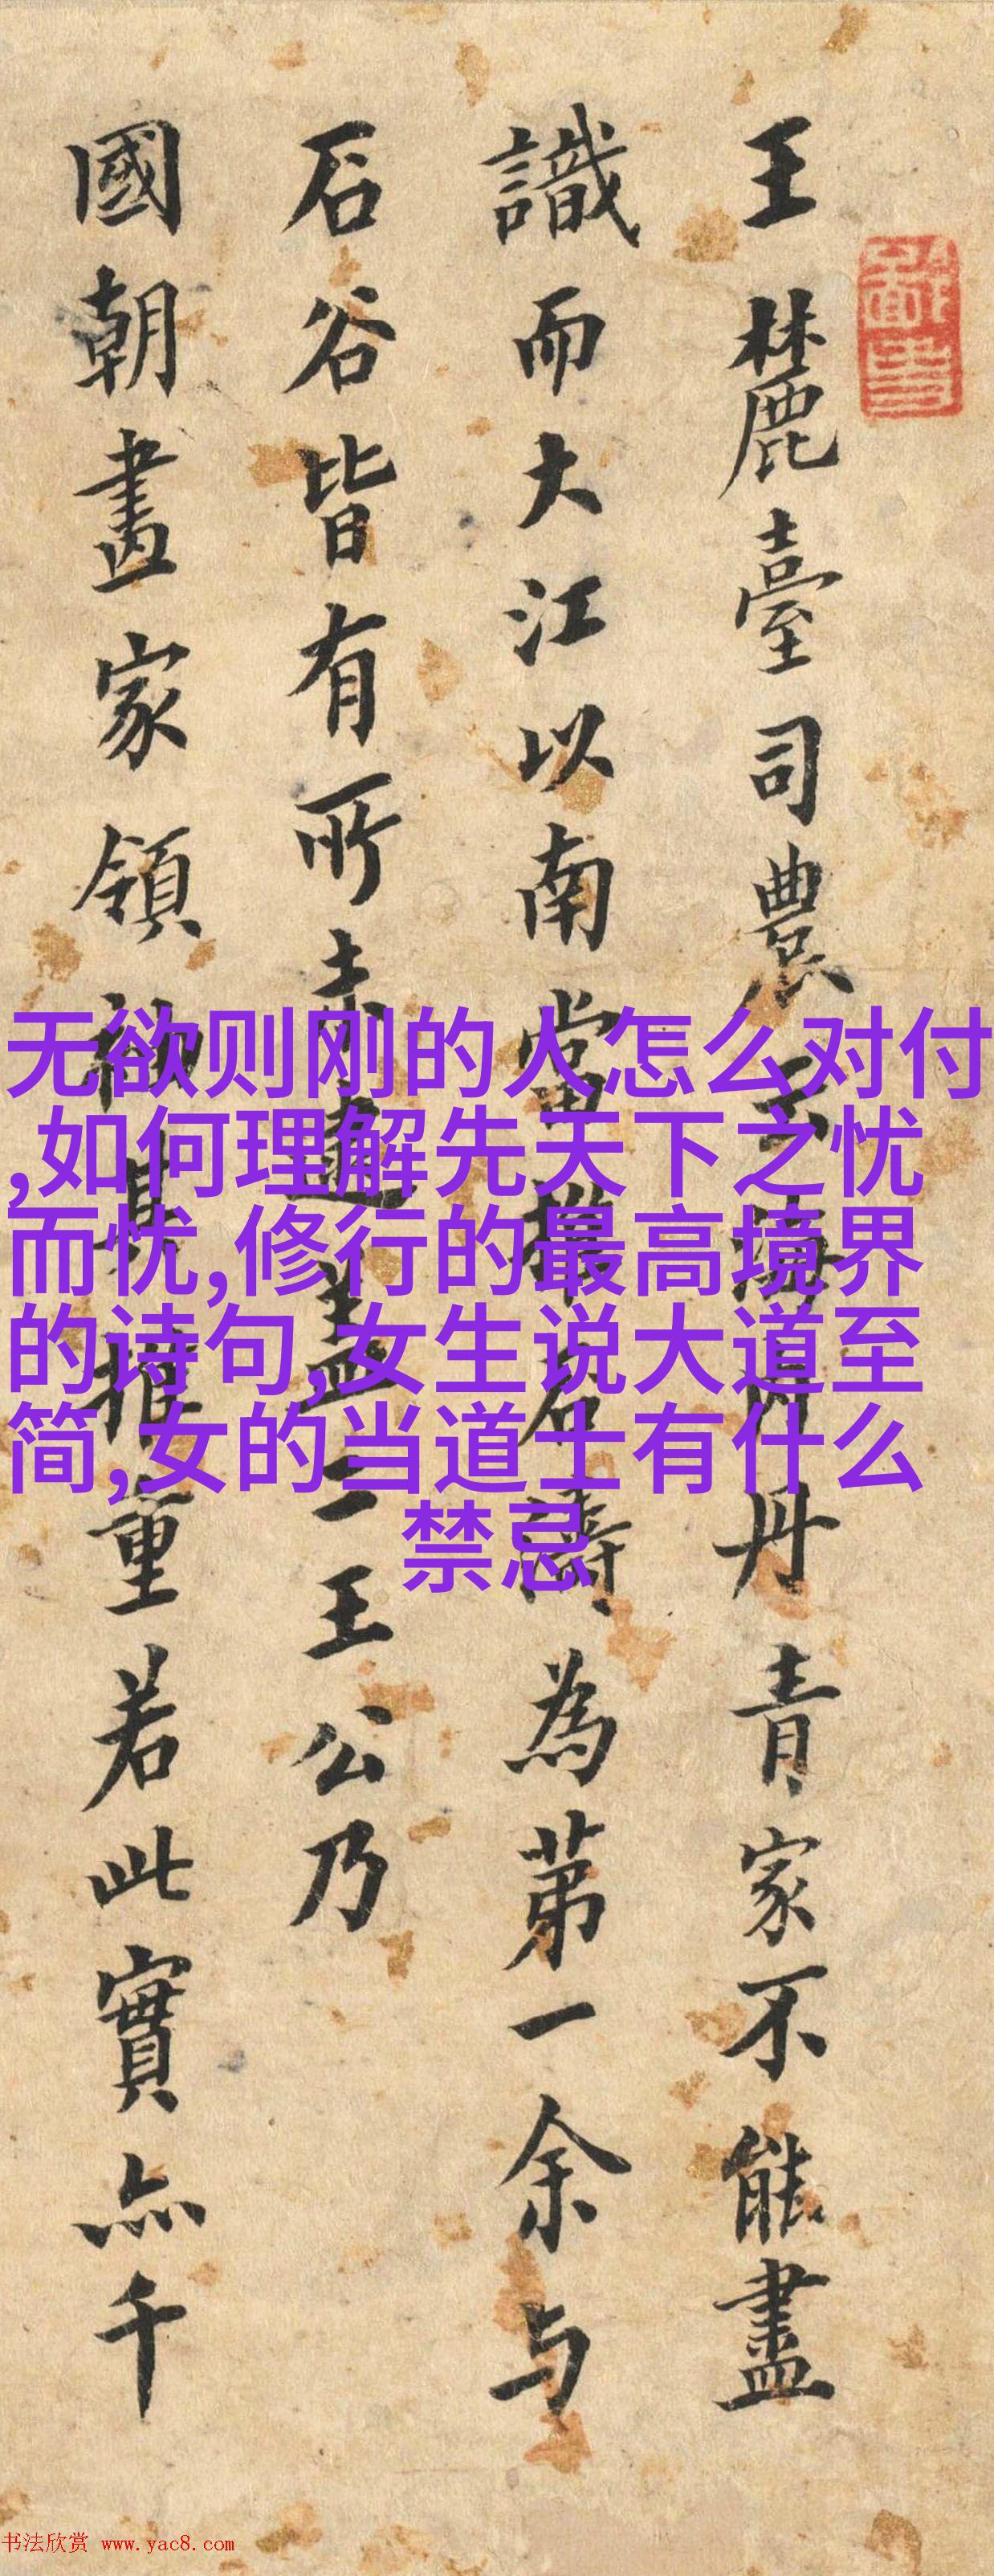 王麓臺司農云海內丹青家不能盡
識而大江以南當推石濤為苐一余与
石谷皆有所未逮盖二王公乃
國朝畫家領袖其推重若此實亦千
无欲则刚的人怎么对付
,如何理解先天下之忧
而忧,修行的最高境界
的诗句,女生说大道至
简,女的当道士有什么
禁忌
书法欣赏 www.yac8.com